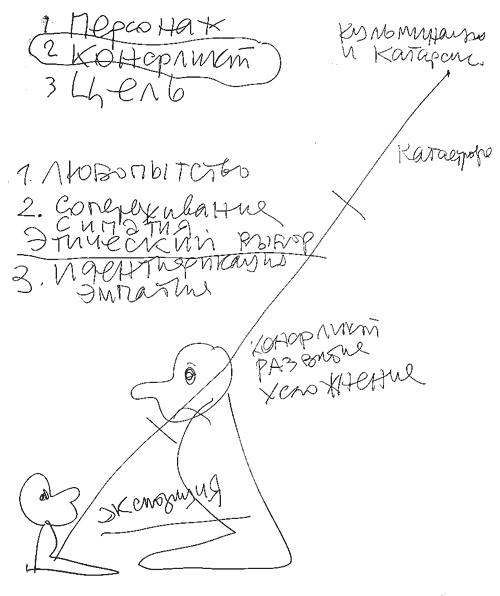 1 Персонаж
2 Конфликт
3 Цель
Кульминация
и Катарсис.
Катастрофа
1. Любопытство
2. Сопереживание
Симпатия
Этический выбор
3. Идентификация
Эмпатия
Конфликт
Развитие
Усложнение
Экспозиция